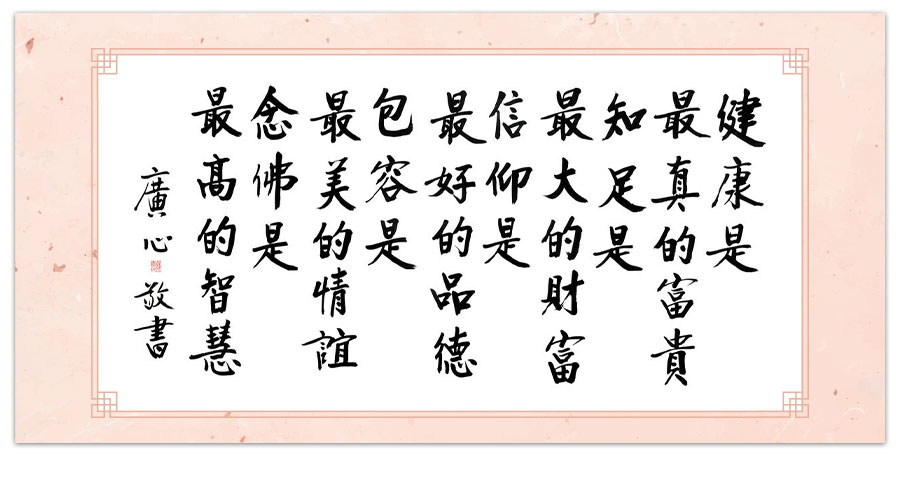 健康是
最真的富貴
知足是
最大的財富
信仰是
最好的品德
包容是
最美的情誼
念佛是
最高的智慧
廣心敬書